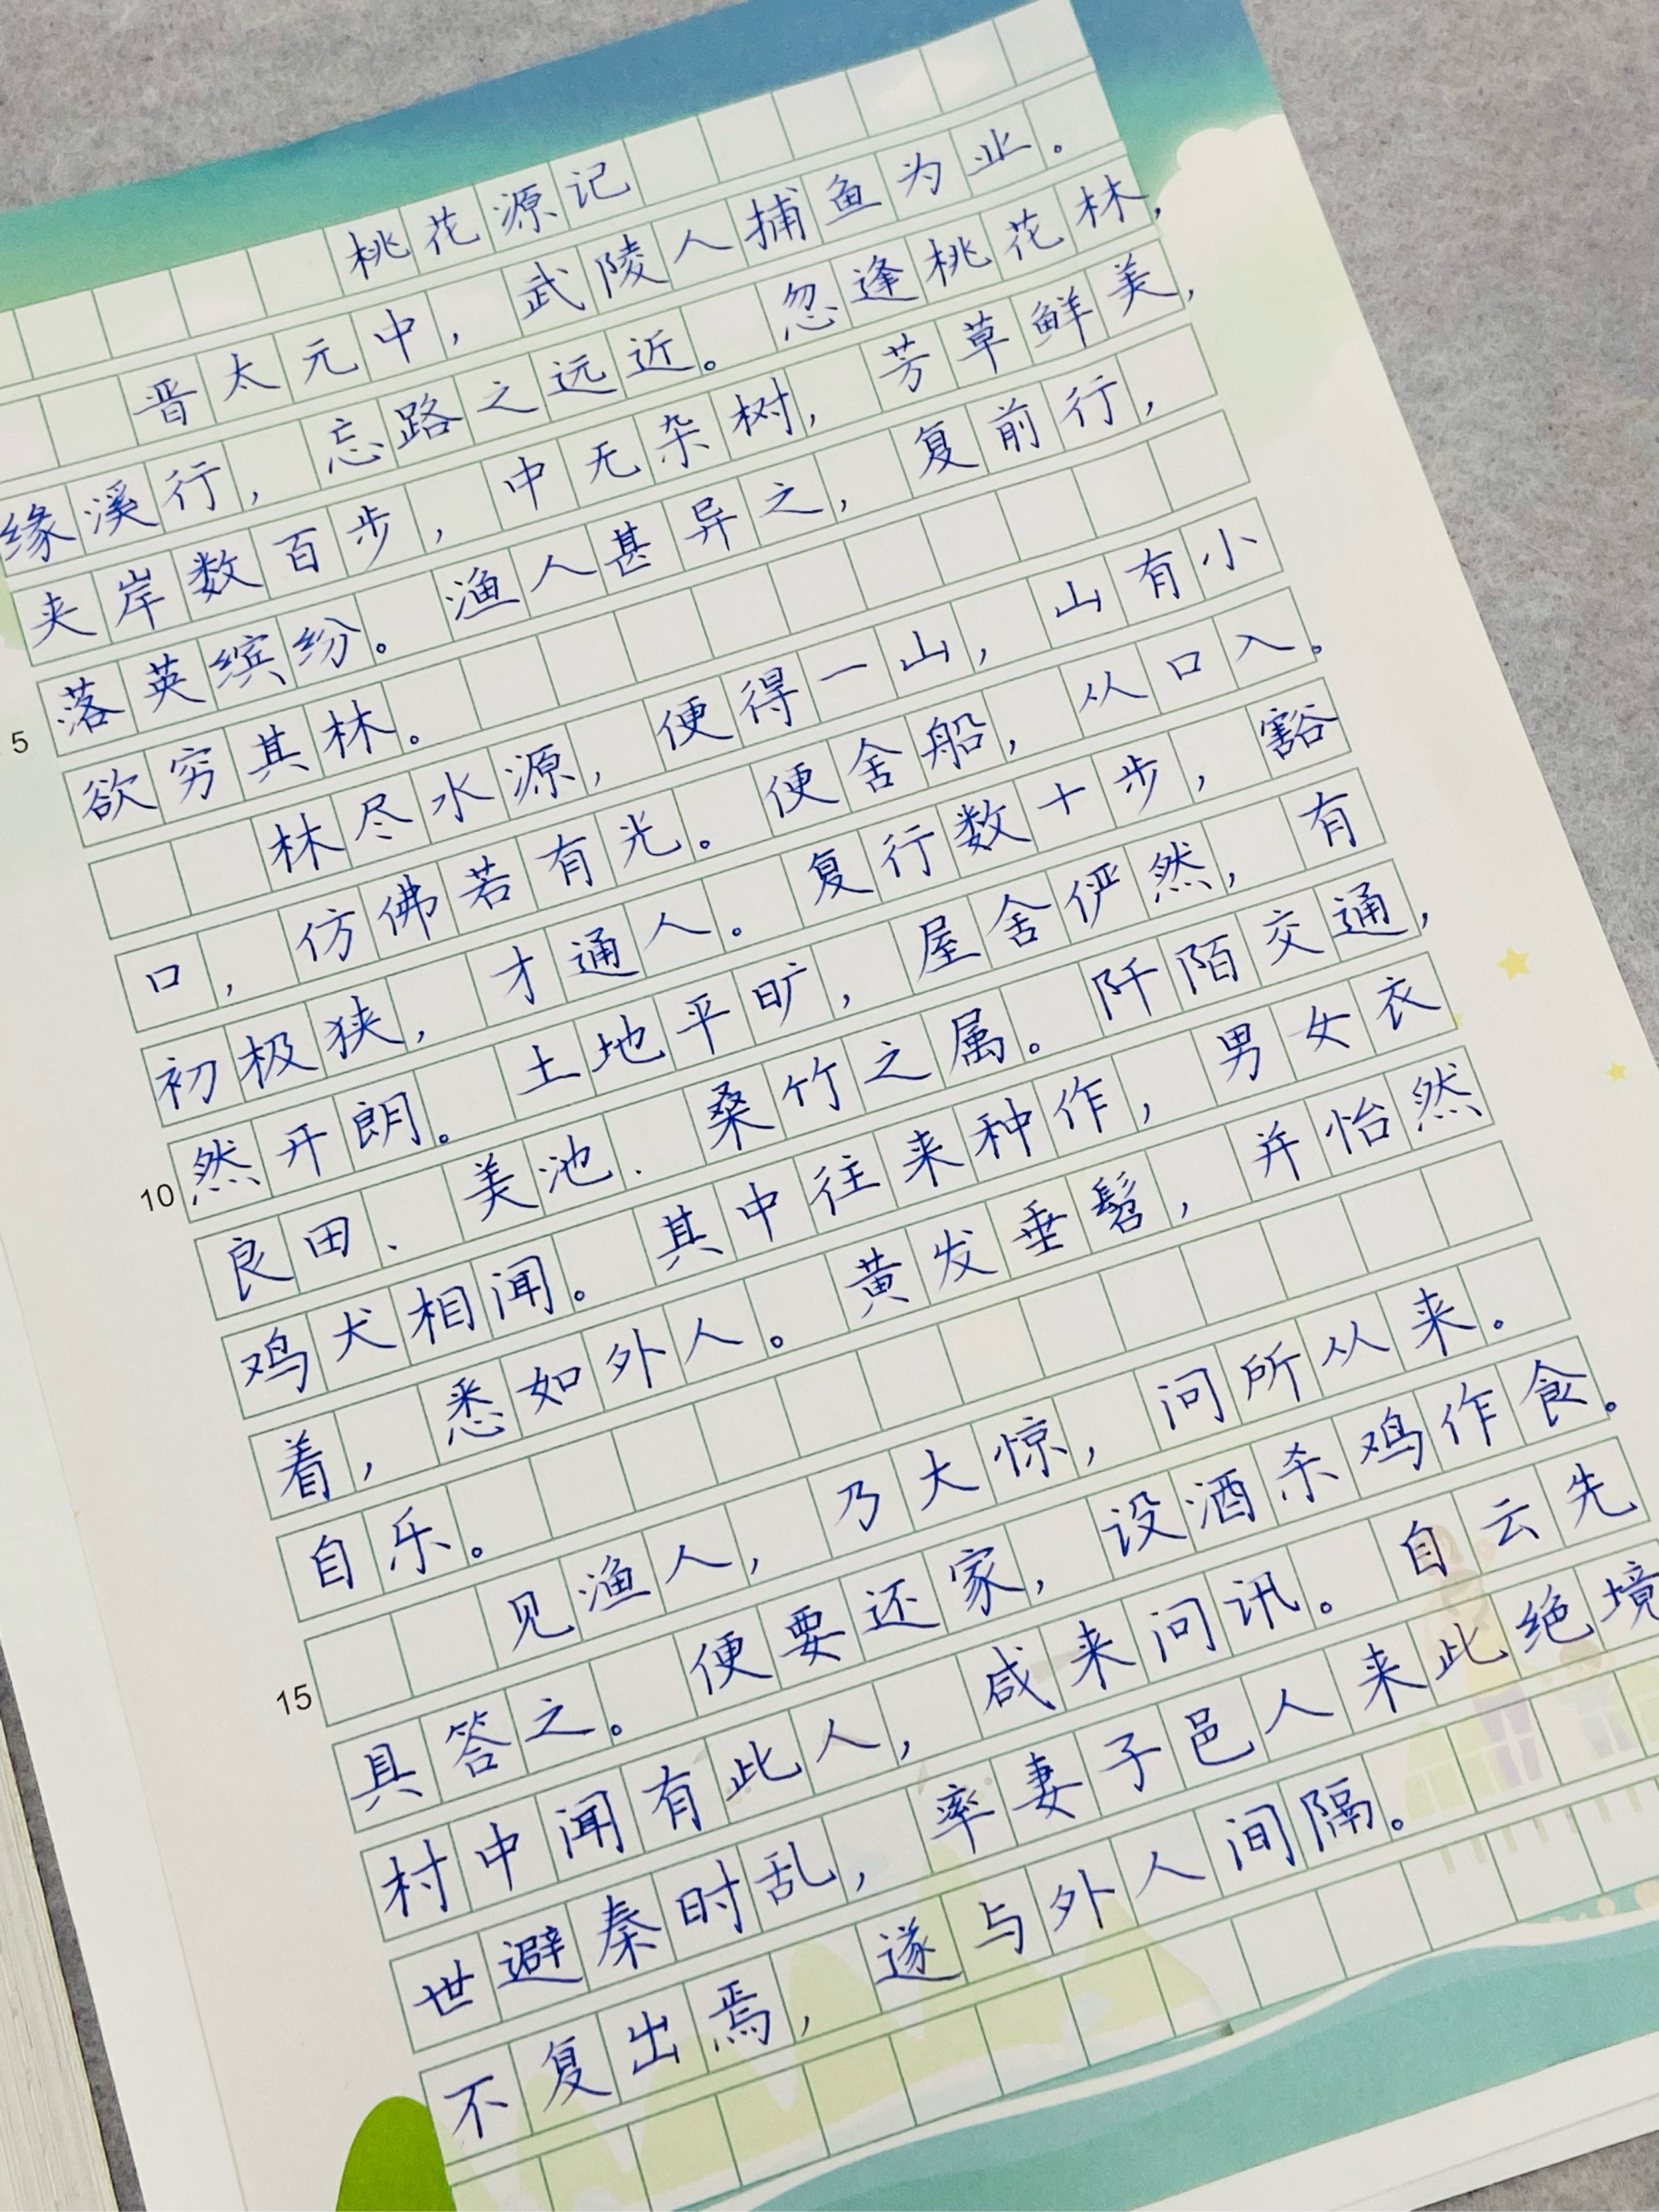 桃花源记
晋太元中，武陵人捕鱼为业。
缘溪行，忘路之远近。忽逢桃花林，
夹岸数百步，中无杂树，芳草鲜美，
落英缤纷。渔人甚异之，复前行，
5
欲穷其林。
林尽水源，便得一山，山有小
口，仿佛若有光。便舍船，从口入。
初极狭，才通人。复行数十步，豁
10
然开朗。土地平旷，屋舍俨然，有
良田、美池、桑竹之属。阡陌交通，
鸡犬相闻。其中往来种作，男女衣
着，悉如外人。黄发垂髫，并怡然
自乐。
15
见渔人，乃大惊，问所从来。
具答之。便要还家，设酒杀鸡作食。
村中闻有此人，咸来问讯。自云先
世避秦时乱，率妻子邑人来此绝境
不复出焉，遂与外人间隔。